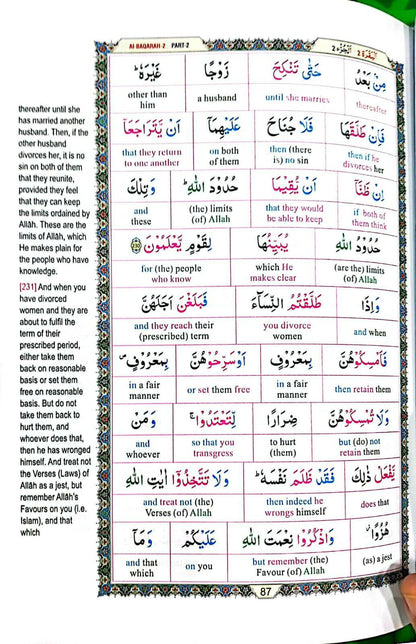 AI-BAQARAH-2 PART-2 اَلْجُزْءُ ٢ اَلْبَقَرَة ٢
thereafter until she
has married another
husband. Then, if the
other husband
divorces her, it is no
sin on both of them
that they reunite,
provided they feel
that they can keep
the limits ordained by
Allāh. These are the
limits of Allāh, which
He makes plain for
the people who have
knowledge.
[231] And when you
have divorced
women and they are
about to fulfil the
term of their
prescribed period,
either take them
back on reasonable
basis or set them
free on reasonable
basis. But do not
take them back to
hurt them, and
whoever does that,
then he has wronged
himself. And treat not
the Verses (Laws) of
Allāh as a jest, but
remember Allāh's
Favours on you (i.e.
Islam), and that
which
مِنْۢ بَعْدُ حَتّٰى تَنْكِحَ زَوْجًا غَيْرَهٗ ؕ
thereafter until she marries a husband other than him
فَاِنْ طَلَّقَهَا فَلَا جُنَاحَ عَلَيْهِمَاۤ اَنْ يَّتَرَاجَعَاۤ
then if he divorces her then (there is) no sin on both of them that they return to one another
اِنْ ظَنَّاۤ اَنْ يُّقِيْمَا حُدُوْدَ اللّٰهِ ؕ وَتِلْكَ
if both of them think that they would be able to keep (the) limits (of) Allah and these
حُدُوْدُ اللّٰهِ يُبَيِّنُهَا لِقَوْمٍ يَّعْلَمُوْنَ 230
(are the) limits (of) Allah which He makes clear for (the) people who know
وَاِذَا طَلَّقْتُمُ النِّسَآءَ فَبَلَغْنَ اَجَلَهُنَّ
and when you divorce women and they reach their (prescribed) term
فَاَمْسِكُوْهُنَّ بِمَعْرُوْفٍ اَوْ سَرِّحُوْهُنَّ بِمَعْرُوْفٍ ص
then retain them in a fair manner or set them free in a fair manner
وَلَا تُمْسِكُوْهُنَّ ضِرَارًا لِّتَعْتَدُوْا ۚ وَمَنْ
but (do) not retain them to hurt (them) so that you transgress and whoever
يَّفْعَلْ ذٰلِكَ فَقَدْ ظَلَمَ نَفْسَهٗ ؕ وَلَا تَتَّخِذُوْۤا اٰيٰتِ اللّٰهِ
does that then indeed he wrongs himself and treat not (the) Verses (of) Allah
هُزُوًا ۫ وَاذْكُرُوْا نِعْمَتَ اللّٰهِ عَلَيْكُمْ وَمَاۤ
(as) a jest but remember (the) Favour (of) Allah on you and that which
87